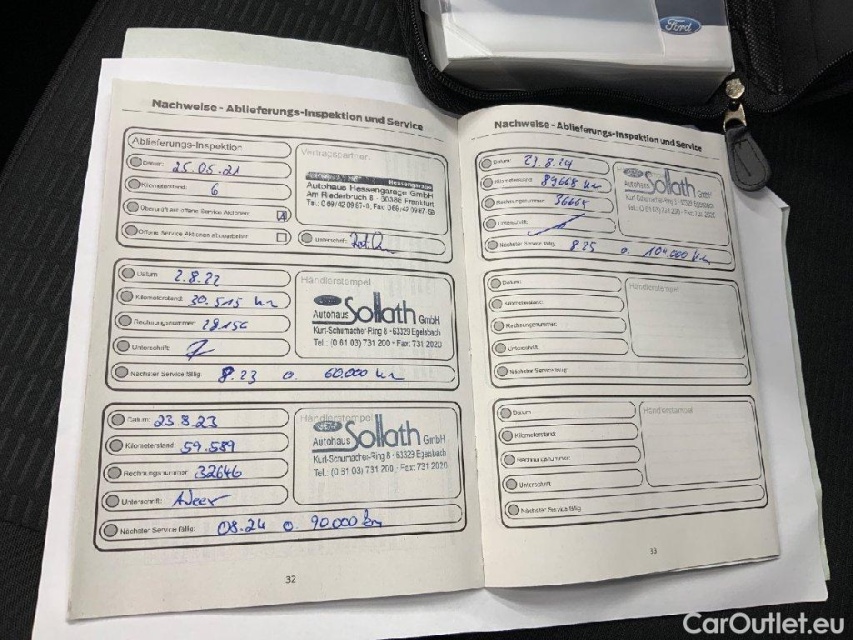 Ford
Nachweise - Ablieferungs-Inspektion und Service
Ablieferungs-Inspektion
Datum: 25.05.21
Kilometerstand: 6
Überprüft auf offene Service Aktionen
Offene Service Aktionen abgearbeitet
Vertragspartner:
Hessengarage
Autohaus Hessengarage GmbH
Am Riederbruch 6 - 60386 Frankfurt
Unterschrift:
Datum: 2.8.22
Kilometerstand: 30.515 km
Rechnungsnummer: 28156
Unterschrift:
Nächster Service fällig: 8.23 o. 60.000 km
Händlerstempel
Ford
Autohaus Sollath GmbH
Kurt-Schumacher-Ring 8 - 63329 Egelsbach
Tel.: (0 61 03) 731 200 - Fax: 731 2020
Datum: 23 8.23
Kilometerstand: 59.589
Rechnungsnummer: 32646
Unterschrift:
Nächster Service fällig: 08.24 o. 90000 km
Händlerstempel
Ford
Autohaus Sollath GmbH
Kurt-Schumacher-Ring 8 - 63329 Egelsbach
Tel.: (0 61 03) 731 200 - Fax: 731 2020
32
Nachweise - Ablieferungs-Inspektion und Service
Datum: 29.8.24
Kilometerstand: 89668 km
Rechnungsnummer: 36668
Unterschrift:
Nächster Service fällig: 8.25 o. 104.000 km
Autohaus Sollath GmbH
Kurt-Schumacher-Ring 8 - 63329 Egelsbach
Tel.: (0 61 03) 731 200 - Fax: 731 2020
Datum:
Kilometerstand:
Rechnungsnummer:
Unterschrift:
Nächster Service fällig:
Händlerstempel
Datum:
Kilometerstand:
Rechnungsnummer:
Unterschrift:
Nächster Service fällig:
Händlerstempel
33
CarOutlet.eu